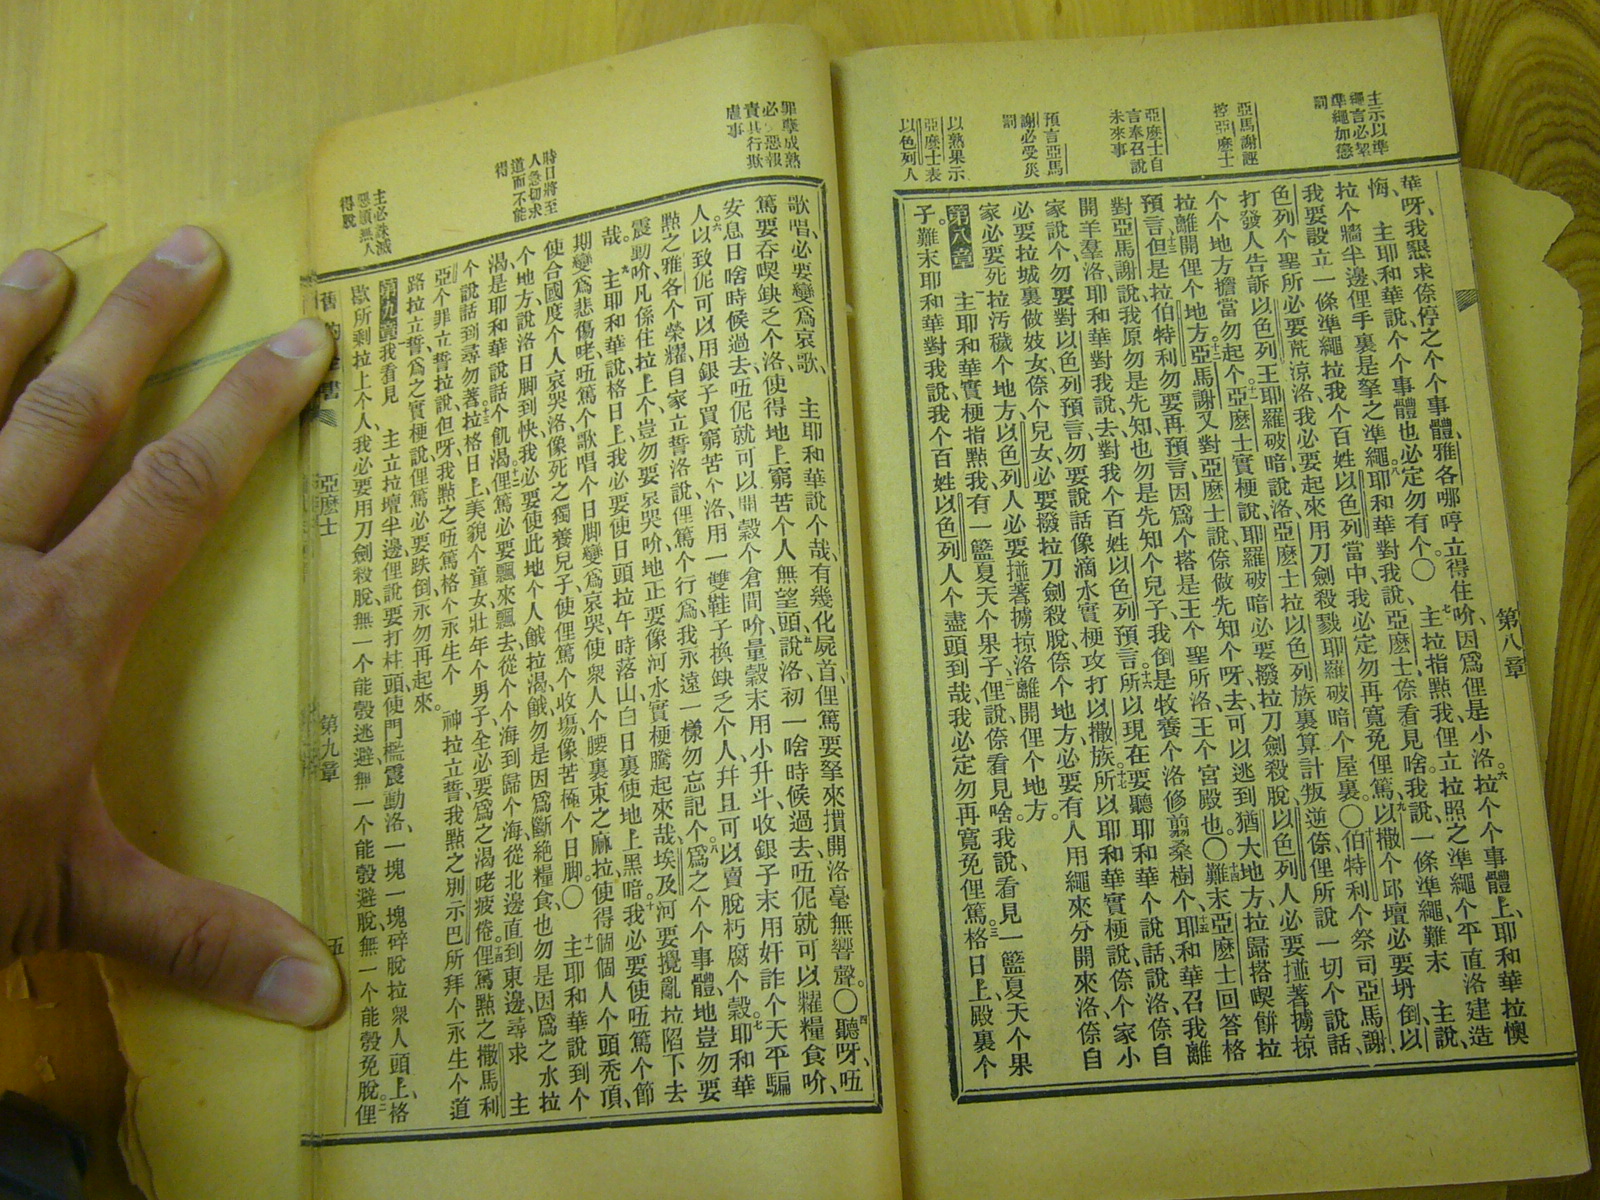 第八章
主示以準
繩言必絜
準繩加懲
罰
亞馬謝誣
控亞麽士
亞麽士自
言奉召說
未來事
預言亞馬
謝必受災
罰
以熟果示
亞麽士表
以色列人
華呀、我懇求倷停之个个事體、雅各哪哼立得住吤、因爲俚是小洛。拉个个事體上、耶和華拉懊
悔、主耶和華說、个个事體也必定勿有个。〇主拉指點我、俚立拉照之準繩个平直洛建造
拉个牆半邊、俚手裏是拏之準繩、耶和華對我說、亞麽士倷看見啥、我說、一條準繩、難末主說、
我要設立一條準繩拉我个百姓以色列當中、我必定勿再寬免俚篤、以撒个邱壇必要坍倒、以
色列个聖所必要荒涼洛、我必要起來用刀劍殺戮耶羅破暗个屋裏。〇伯特利个祭司亞馬謝、
打發人告訴以色列王耶羅破暗、說洛、亞麽士拉以色列族裏算計叛逆倷、俚所說一切个說話、
个个地方擔當勿起个、亞麽士實梗說、耶羅破暗必要撥拉刀劍殺脫、以色列人必要䃅著擄掠
拉離開俚个地方、亞馬謝又對亞麽士說、倷做先知个呀、去、可以逃到猶大地方、拉歸搭喫餅拉
預言、但是拉伯特利勿要再預言、因爲个搭是王个聖所洛王个宮殿也。〇難末亞麽士回答
對亞馬謝說、我原勿是先知、也勿是先知个兒子、我倒是牧養个洛修剪桑樹个、耶和華召我離
開羊羣洛、耶和華對我說、去對我个百姓以色列預言、所以現在要聽耶和華个說話、說洛倷自
家說个、勿要對以色列預言、勿要說話像滴水實梗攻打以撒族、所以耶和華實梗說、倷个家小
必要拉城裏做妓女、倷个兒女必要撥拉刀劍殺脫、倷个地方必要有人用繩來分開來洛、倷自
家必要死拉汚穢个地方、以色列人必要䃅著擄掠洛離開俚个地方。
第八章主耶和華實梗指點我、有一籃夏天个果子、俚說、倷看見啥、我說、看見一籃夏天个果
子、難末耶和華對我說、我个百姓以色列人个盡頭到哉、我必定勿再寬免俚篤。格日上、殿裏个
罪孽成熟
必 惡報
責其行欺
虐事
時日將至
人急切求
道而不能
得
主必誅滅
惡頑無人
得脫
歌唱、必要變爲哀歌、主耶和華說个哉、有幾化屍首、俚篤要拏來摜開洛毫無響聲。〇聽呀、呒
篤要吞喫缺乏个洛使得地上窮苦个人無望頭、說洛、初一啥時候過去、呒伲就可以糶糧食吤、
安息日啥時候過去、呒伲就可以開穀个倉間吤、量穀末用小升斗、收銀子末用奸詐个天平騙
人、以致伲可以用銀子買窮苦个洛用一雙鞋子換缺乏个人、幷且可以賣脫朽腐个穀、耶和華
點之雅各个榮耀自家立誓洛說、俚篤个行爲、我永遠一樣勿忘記个。爲之个个事體、地豈勿要
震動吤、凡係住拉上个豈勿要哀哭吤、地正要像河水實梗騰起來哉、埃及河要攪亂拉陷下去
哉。主耶和華說、格日上、我必要使日頭拉午時落山、白日裏使地上黑暗、我必要使呒篤个節
期變爲悲傷咾、呒篤个歌唱个日脚變爲哀哭、使衆人个腰裏束之麻拉、使得個個人个頭禿頂、
使合國度个人哀哭洛像死之獨養兒子、使俚篤个收塲像苦極个日脚。〇主耶和華說、到个
个地方、說洛、日脚到快、我必要使此地个人餓拉渴、餓勿是因爲斷絶糧食、也勿是因爲之水拉
渴、是耶和華說話个飢渴、俚篤必要飄來飄去、從个个海到歸个海、從北邊直到東邊、尋求主
个說話、到尋勿著。拉格日上、美貌个童女、壯年个男子、全必要爲之渴咾疲倦、俚篤點之撒馬利
亞个罪立誓拉說、但呀、我點之呒篤格个永生个神拉立誓、我點之別示巴所拜个永生个道
路拉立誓、爲之實梗說、俚篤必要跌倒、永勿再起來。
第九章我看見主立拉壇半邊、俚說、要打柱頭、使門檻震動洛、一塊一塊碎脫拉衆人頭上、格
歇所剩拉上个人、我必要用刀劍殺脫、無一个能彀逃避、無一个能彀避脫、無一个能彀免脫。俚
亞麽士
第九章
五